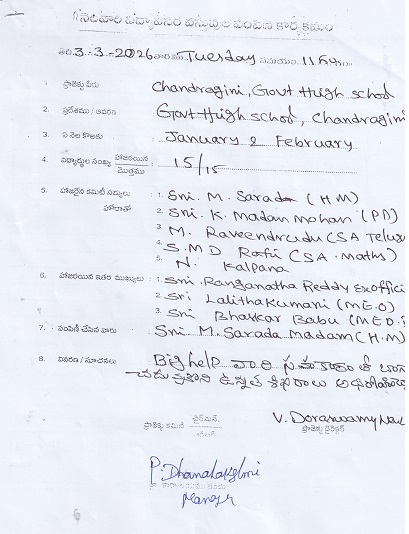 నెలవారి విద్యావసర వస్తువుల పంపిణీ కార్యక్రమం
తేది. 3-3-2026 వారము Tuesday సమయం 11
1. ప్రాజెక్టు పేరు Chandragiri, Govt High school
2. ప్రదేశము / ఆవరణ Govt High school, Chandragiri
3. ఏ నెల కొరకు January & February
4. విద్యార్థుల సంఖ్య హాజరయిన / మొత్తము 15/15
5. హాజరైన కమిటీ సభ్యులు 1. Sri. M. Sarada (H M)
హోదాతో 2. Sri. K. Madan mohan (PD)
3. M. Raveendrudu (SA Telugu
4. S. M D Rafi (SA. Maths)
5. N. Kalpana
6. హాజరయిన ఇతర ముఖ్యులు 1. Sri. Ranganatha Reddy Exoffici
2. Sri Lalithakumari (M.E.O)
3. Sri Bhaskar Babu (MEO
7. పంపిణీ చేసిన వారు Sri M. Sarada Madam (H.M)
8. వివరణ / సూచనలు Bighelp వారి సహకారంతో బాగా
చదువుకొని ఉన్నత శిఖరాలు
ప్రాజెక్టు కమిటీ చైర్మన్
V. Doraswamy
ప్రాజెక్టు డైరెక్టర్
P. Dhanalakshmi
Manager